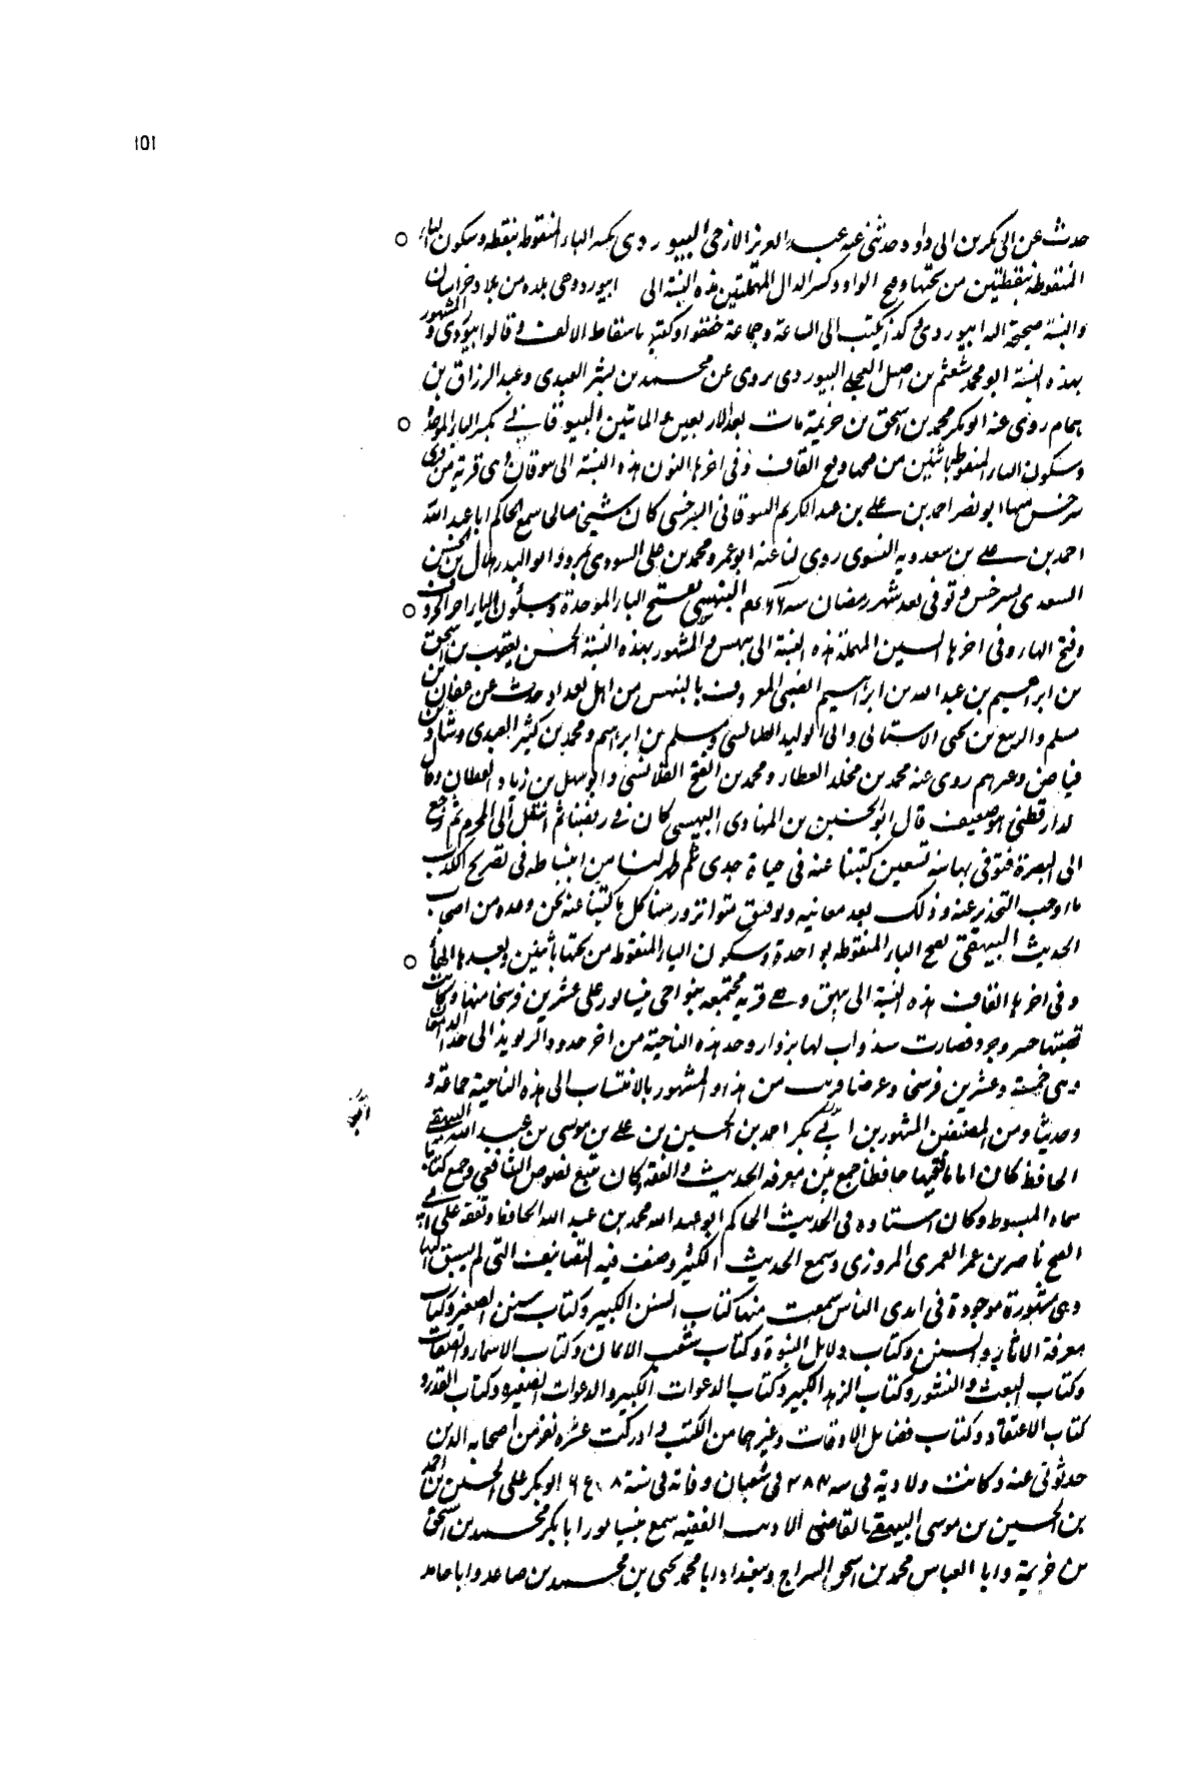 101
حدث عن ابى بكر بن ابى داود حدثنى عنه عبد العزيز الازجى البيوردى بكسر الباء المنقوطة بنقطة وسكون الياء
المنقوطة بنقطتين من تحتها وفتح الواو وكسر الدال المهملتين هذه النسبة الى ابيورد وهى بلدة من بلاد خراسان
والنسبة صحيحة اليها ابيوردى كذا يكتب الى الساعة وجماعة خففوا وكتبوا باسقاط الالف وقالوا بيوردى والمشهور
بهذه النسبة ابو محمد بن اصيل العجلى البيوردى يروى عن محمد بن بشر العبدى وعبد الرزاق بن
همام روى عنه ابو بكر محمد بن اسحق بن خزيمة مات بعد الاربعين والمائتين البيوقانى بكسر الباء الموحدة
وسكون الياء المنقوطة باثنتين من تحتها وفتح القاف وفى اخرها النون هذه النسبة الى بيوقان وهى قرية من قرى
سرخس منها ابو نصر احمد بن على بن عبد الكريم البيوقانى السرخسى كان شيخا صالحا سمع الحاكم ابا عبد الله
احمد بن على بن سعدويه النسوى روى لنا عنه ابو عمرو محمد بن على بمرو وابو البدر هلال بن الحسن
السعدى بسرخس وتوفى بعد شهر رمضان سنه البيهسى بفتح الباء الموحدة وسكون الياء اخر الحروف
وفتح الهاء وفى اخرها السين المهملة هذه النسبة الى بيهس والمشهور بهذه النسبة الحسن يعقوب بن اسحق
بن ابراهيم بن عبد الله بن ابراهيم الضبى المعروف بالبيهسى من اهل بغداد حدث عن عفان بن
مسلم والربيع بن يحى الاشنانى وابى الوليد الطيالسى ومسلم بن ابراهيم ومحمد بن كثير العبدى وشاذ بن
فياض وغيرهم روى عنه محمد بن مخلد العطار ومحمد بن الفتح القلانسى وابو سهل بن زياد القطان وقال
الدارقطنى هو ضعيف قال ابو الحسين بن المنادى البيهسى كان فى ربضنا ثم انتقل الى المخرم ثم رجع
الى البصرة فتوفى بها سنة تسعين كتبنا عنه فى حياة جدى ثم ظهر لنا من انبساطه فى تصريح الكذب
ما اوجب التحذير عنه وذلك بعد معاتبة وتوقيف متواتر فرمينا كل ما كتبنا عنه نحن وعدة من اصحاب
الحديث البيهقى بفتح الباء المنقوطة بواحدة وسكون الياء المنقوطة من تحتها باثنتين وبعدها الهاء
وفى اخرها القاف هذه النسبة الى بيهق وهى قرية مجتمعة بنواحى نيسابور على عشرين فرسخا منها وكانت
قصبتها خسروجرد فصارت سبزوار وحد هذه الناحية من اخر حدود الريوند الى حد الدامغان
وهى خمسة وعشرين فرسخا وعرضا قريب من هذا والمشهور بالانتساب الى هذه الناحية جماعة
وحديثا ومن المصنفين المشهورين ابى بكر احمد بن الحسين بن على بن موسى بن عبد الله البيهقى
الحافظ كان اماما فقيها حافظا جمع بين معرفة الحديث والفقه وكان تتبع نصوص الشافعى وجمع كتابا
سماه المبسوط وكان استاده فى الحديث الحاكم ابو عبد الله محمد بن عبد الله الحافظ وتفقه على ابى
الفتح ناصر بن عمر العمرى المروزى وسمع الحديث الكثير وصنف فيه التصانيف التى لم يسبق اليها
وهى مشهورة موجودة فى ايدى الناس سمعت منها كتاب السنن الكبير وكتاب سنن الصغير وكتاب
معرفة الاثار والسنن وكتاب دلائل النبوة وكتاب شعب الايمان وكتاب الاسماء والصفات
وكتاب البعث والنشور وكتاب الزهد الكبير وكتاب الدعوات الكبير والدعوات الصغير وكتاب القدر و
كتاب الاعتقاد وكتاب فضائل الاوقات وغيرها من الكتب وادركت عشرة نفر من اصحابه الذين
حدثونى عنه وكانت ولادته فى سنه ٣٨٤ فى شعبان وفاته فى سنة ابو بكر على الحسين بن احمد
بن الحسين بن موسى البيهقى القاضى الاديب الفقيه سمع بنيسابور ابا بكر محمد بن اسحق
بن خزيمة وابا العباس محمد بن اسحق السراج وببغداد ابا محمد يحى بن محمد بن صاعد وابا حامد